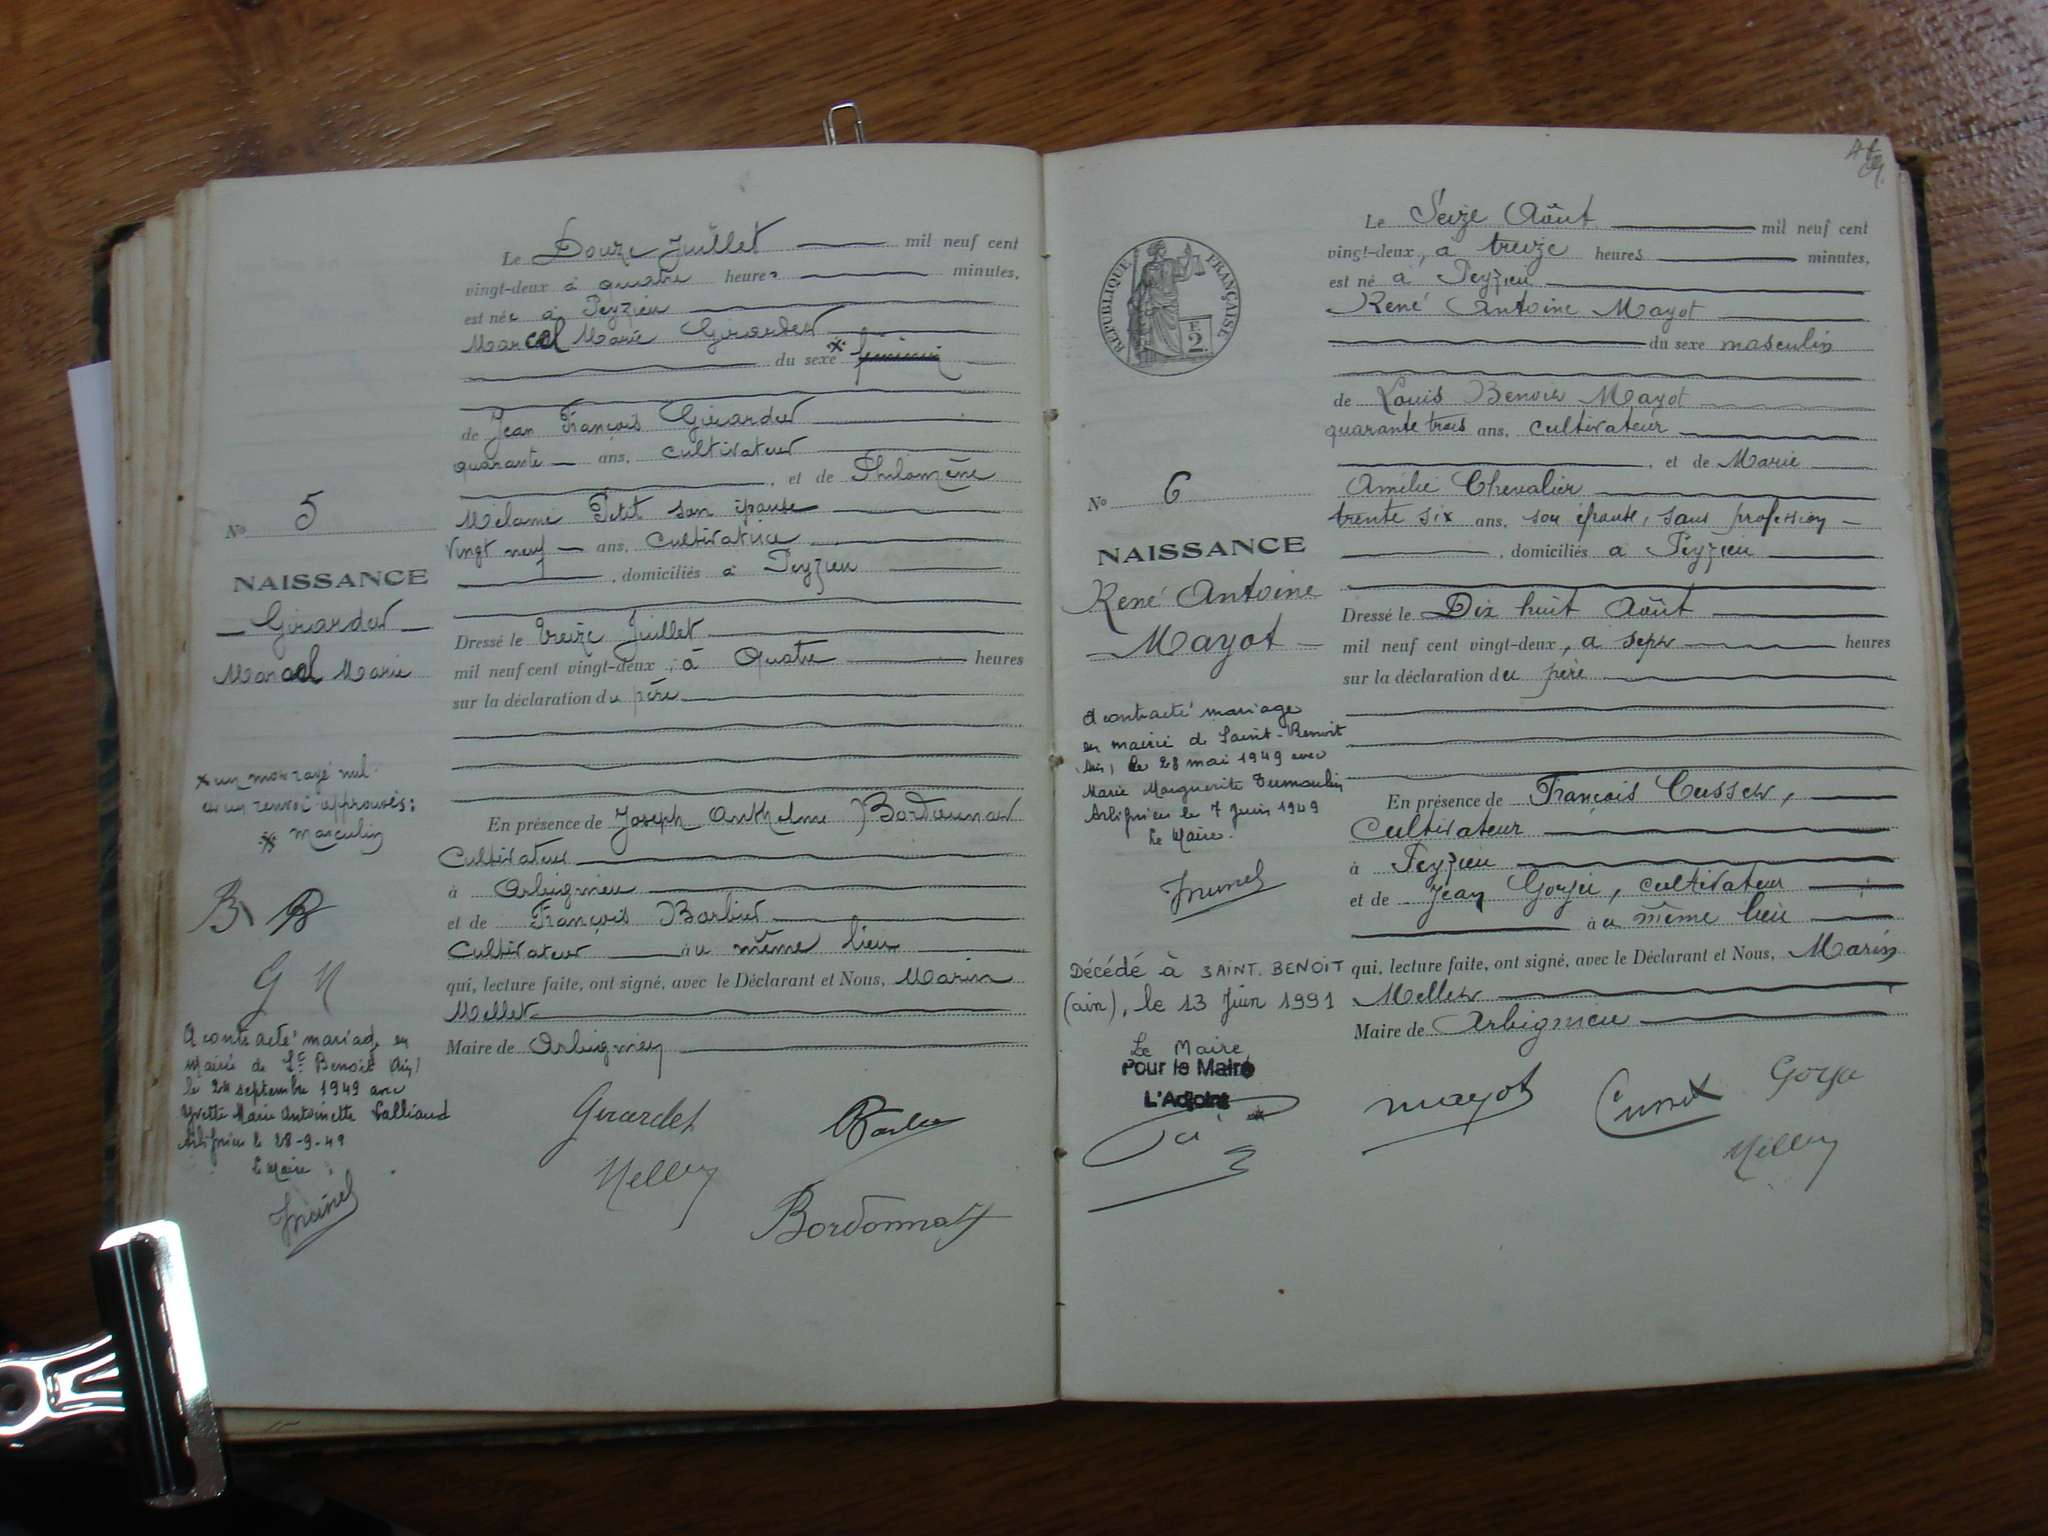 Le Douze Juillet mil neuf cent
vingt-deux à quatre heures minutes,
est née à Peyzieu
Marcel Marie Girardet
du sexe * féminin
de Jean François Girardet
quarante ans, cultivateur
, et de Philomène
Mélanie Petit son épouse
vingt neuf ans, cultivatrice
, domiciliés à Peyzieu
Dressé le treize Juillet
mil neuf cent vingt-deux, à quatre heures
sur la déclaration du père
En présence de Joseph Anthelme Bordonnat
Cultivateur
à Arbignieu
et de François Barbier
Cultivateur au même lieu
qui, lecture faite, ont signé, avec le Déclarant et Nous, Marin
Mellet
Maire de Arbignieu
No 5
NAISSANCE
Girardet
Marcel Marie
* un mot rayé nul
et un renvoi approuvés:
* masculin
B B
G M
A contracté mariage en
Mairie de St Benoit (Ain)
le 24 septembre 1949 avec
Yvette Marie Antoinette Valliaud
Arbignieu le 28-9-49
Le Maire
Girardet
Mellet
Bordonnat
Le Seize Août mil neuf cent
vingt-deux, à treize heures minutes,
est né à Peyzieu
René Antoine Mayot
du sexe masculin
de Louis Benoit Mayot
quarante trois ans, cultivateur
, et de Marie
Amélie Chevalier
trente six ans, son épouse, sans profession
, domiciliés à Peyzieu
Dressé le Dix huit Août
mil neuf cent vingt-deux, à sept heures
sur la déclaration du père
En présence de François Cusset,
Cultivateur
à Peyzieu
et de Jean Goyet, cultivateur
au même lieu
qui, lecture faite, ont signé, avec le Déclarant et Nous, Marin
Mellet
Maire de Arbignieu
RÉPUBLIQUE FRANÇAISE
2 F
No 6
NAISSANCE
René Antoine
Mayot
A contracté mariage
en mairie de Saint-Benoit
(Ain) le 28 mai 1949 avec
Marie Marguerite Dumoulin
Arbignieu le 7 Juin 1949
Le Maire.
Décédé à SAINT. BENOIT
(ain), le 13 Juin 1991
Le Maire,
Pour le Maire
L'Adjoint
mayot
Cusset
Goya
Mellet